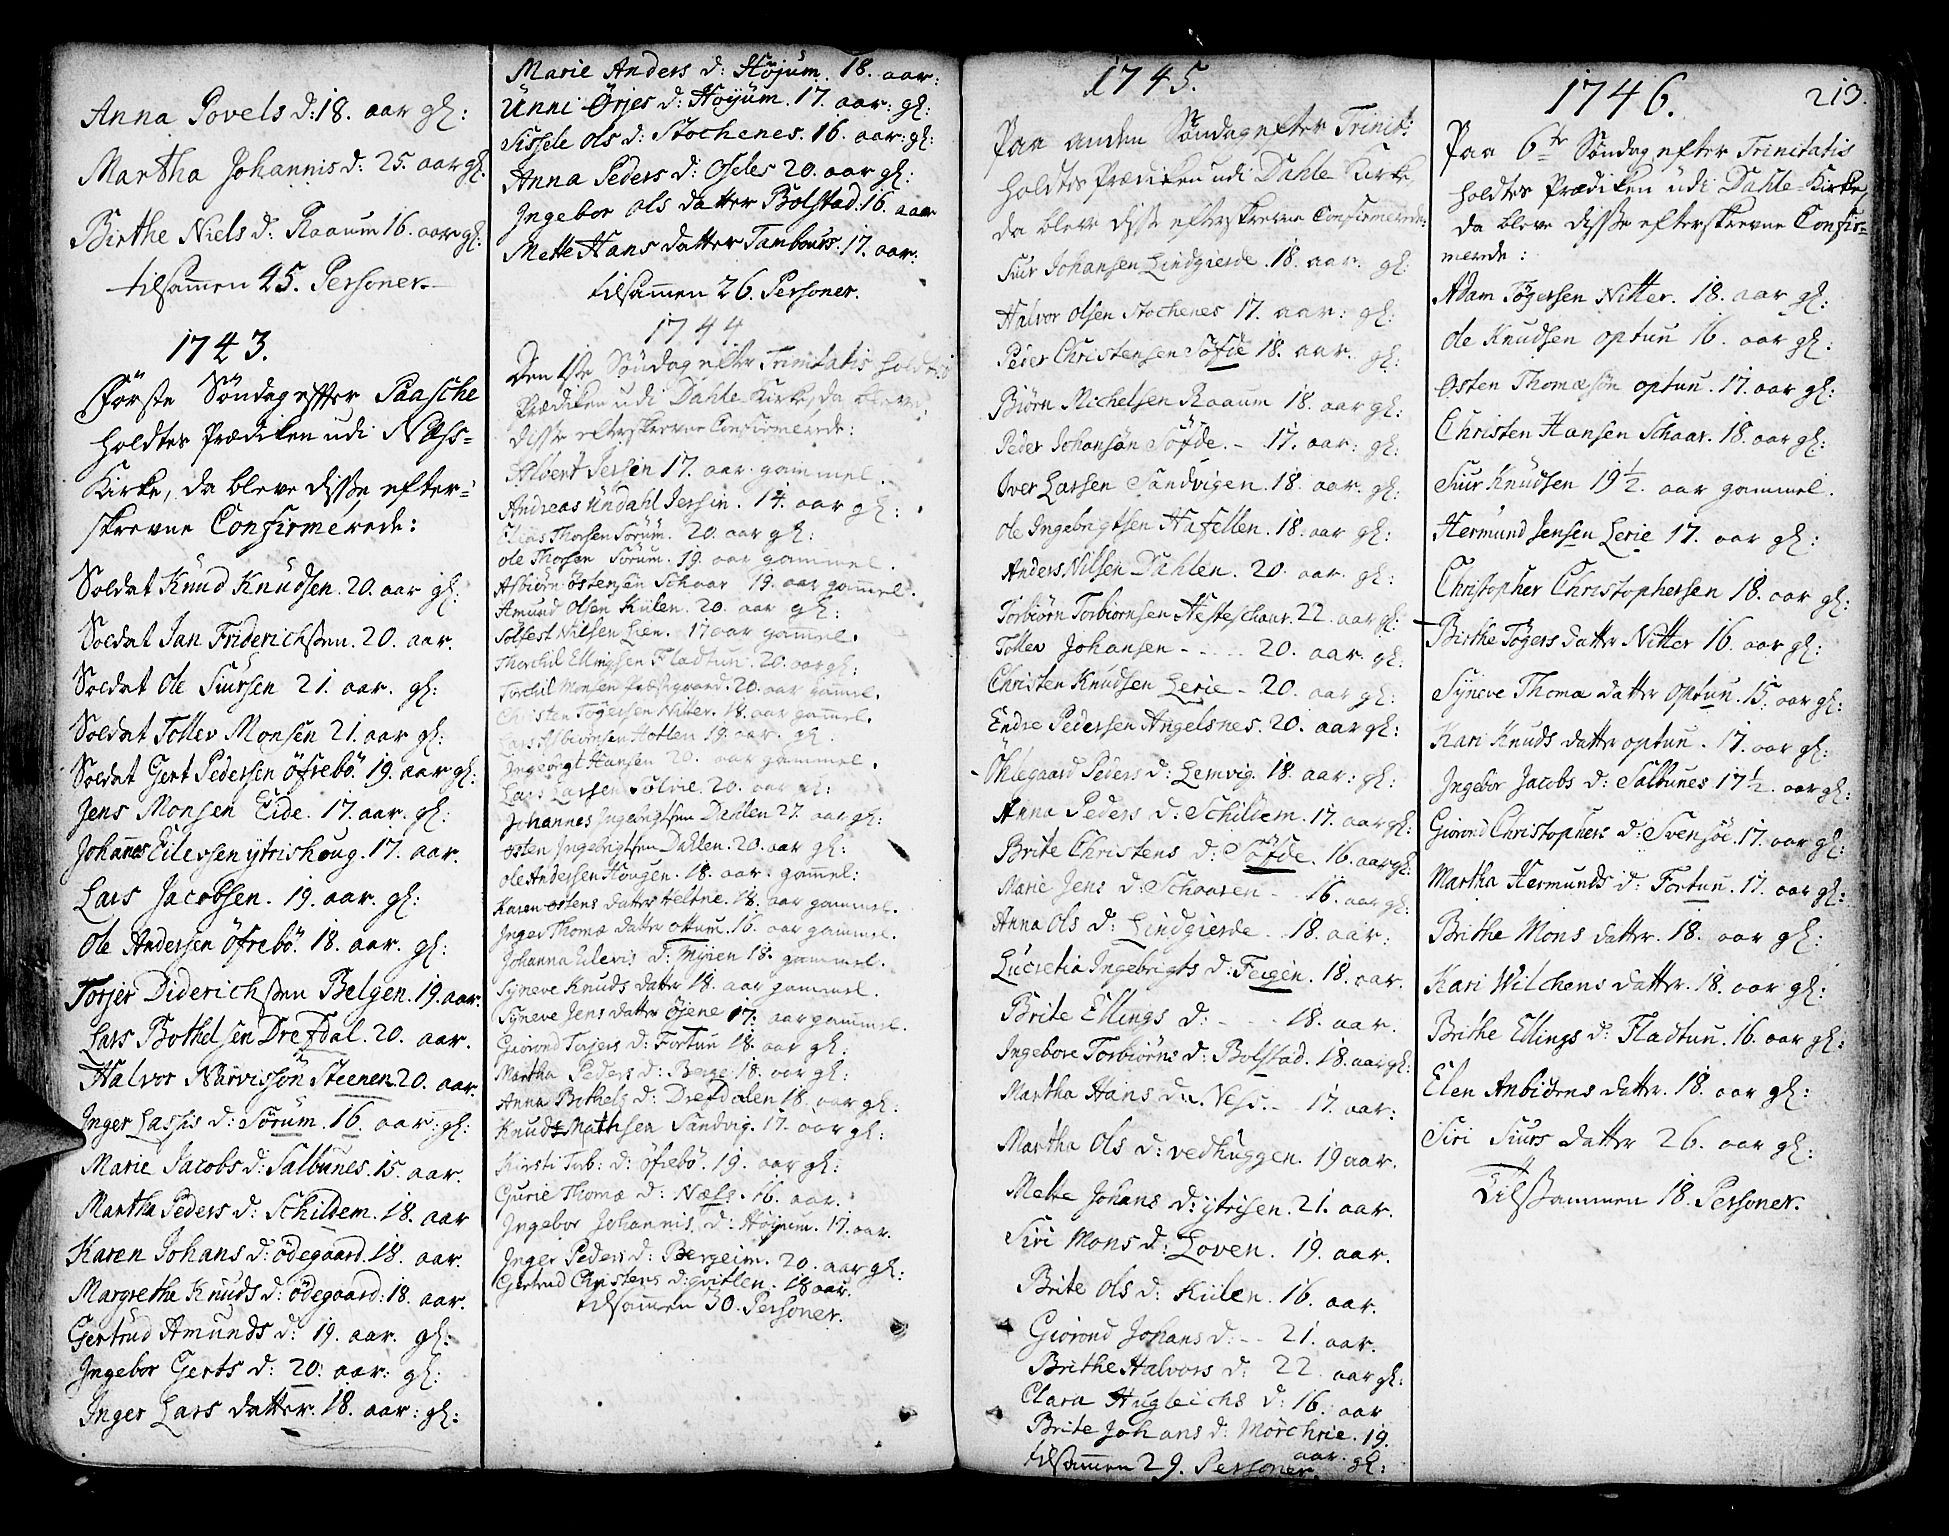 Anna Povels d: 18. aar gl:
Martha Johannis d: 25. aar gl.
Birthe Niels d: Raaum 16. aar gl:
tilsammen 45. Personer.
1743.
Første Søndag efter Paasche
holdtes Prædiken udi Næss-
Kirke, da bleve disse efter-
skrevne Confirmerede:
Soldat Knud Knudsen. 20. aar gl:
Soldat Jan Friderichssen. 20. aar.
Soldat Ole Siursen 21. aar. gl:
Soldat Tollev Monsen 21. aar gl:
Soldat Gert Pedersen Öfrebö. 19. aar gl:
Jens Monsen Eide. 17. aar. gl:
Johannes Eilersen ytrishoug. 17. aar.
Lars Jacobsen. 19. aar. gl:
Ole Andersen Öfrebö. 18. aar. gl:
Torjer Diderichssen Belgen. 19. aar.
Lars Bothelsen Drefdal. 20. aar.
Halvor Narvissön Steenen 20. aar.
Inger Lassis d: Sørum. 16. aar gl:
Marie Jacobs d: Salbunes. 15 aar.
Martha Peders d: Schildem. 18. aar
Karen Johans d: ödegaard. 18. aar.
Margrethe Knuds d: ödegaard: 18. aar.
Gertrud Amunds d: 19. aar. gl:
Ingebor Gerts d: 20. aar: gl:
Inger Lars datter. 18. aar: gl:
Marie Anders d: Höjum. 18. aar:
Unni Örjes d: Höyum. 17. aar: gl:
Sissele ols d: Stochenes. 16. aar: gl:
Anna Peders d: Ofdes 20. aar gl:
Ingebor ols datter Bolstad. 16. aar
Mette Hans datter Tambours. 17. aar.
tilsammen 26. Personer.
1744
Den 1ste Søndag efter Trinitatis holdtes
Prædiken udi Dahle Kirke, da bleve
disse efterskrevne Confirmerede:
Albert Jersin 17. aar. gammel.
Andreas Undahl Jersin. 14. aar gl:
Elias Thorsen Sørum. 20. aar gl:
ole Thorsen Sörum. 19. aar gammel.
Asbiørn östensen Schaar 19. aar gammel.
Amund Olsen Kiilen. 20. aar gl:
Solfest Nilsen Lien. 17 aar gammel.
Thorchil Ellingsen Fladtun. 20. aar gl:
Torchil Monsen Præstgaard. 20. aar gammel.
Christen Tögersen Nitter. 18. aar gammel.
Lars Asbiörnsen Hotlen 19. aar. gl.
Ingebrigt Hansen 20. aar gammel.
Lars Larsen Sølvie. 20. aar gl:
Johannes Ingebrigtsen Dahlen 27. aar gl:
osten Ingebrigtsen Dahlen. 20. aar gl:
ole Andersen Hougen. 18. aar. gammel:
Karen ostens datter Heltne. 18. aar gammel.
Inger Thomæ datter ottum. 16. aar gammel.
Johanna Elevis d: Myren 18. gammel.
Syneve Knuds datter 18. aar gammel.
Syneve Jens datter Öjene 17. aar gammel.
Giorond Torjers d: Fortun 18. aar gl:
Martha Peders d: Berge 18. aar gl:
Anna Bothels d: Drefdalen 18. aar gl:
Knud Mathsen Sandvig. 17. aar gl:
Kirsti Tub: d: öfrebö. 19. aar gl:
Gurie Thomæ d: Næss. 16. aar.
Ingebor Johannis. d: Höyum. 17. aar.
Inger Peders d: Bergeim. 20. aar gl:
Gertrud Christens d: qvitlen. 18 aar.
tilsammen 30. Personer.
1745.
Paa anden Søndag efter Trinit:
holdtes Prædiken udi Dahle Kirke,
da bleve disse efterskrevne Confirmerede:
Siur Johansen Lindgierde. 18. aar. gl:
Halvor Olsen Stochenes 17. aar: gl:
Peder Christensen Söfde 18. aar. gl:
Biørn Michelsen Raaum 18. aar gl:
Peder Johansön Söfde. - 17. aar: gl:
Iver Larsen Sandvigen. 18. aar. gl:
ole Ingebrigtsen Hufellen. 18. aar gl:
Anders Nilsen Dahlen. 20. aar. gl:
Torbiørn Torbiørnsen Hesteschaar. 22. aar gl:
Tollev Johansen - - - 20. aar. gl:
Christen Knudsen Lerie - 20. aar gl:
Endre Pedersen Angelsnes. 20. aar gl:
Öhlegaard Peders d: Lemvig. 18. aar: gl:
Anna Peders d: Schildem. 17. aar gl:
Brite Christens d: Söfde. 16. aar gl:
Marie Jens d: Schaaren - 16. aar gl:
Anna ols d: Lindgierde - 18. aar:
Lucretia Ingebrigts d: Feigen. 18. aar.
Brite Ellings d: - - - 18. aar.
Ingebore Torbiörns d: Bolstad. 18. aar gl:
Martha Hans da. Ness. - 17. aar:
Martha Ols d: vedhuggen. 19 aar.
Mette Johans d: ytrisen. 21. aar.
Siri Mons d: Loven. 19. aar.
Brite ols d: Kiilen. 16. aar.
Giorond Johans d: - - 21. aar.
Brithe Halvors d: 22 aar gl:
Clara Hugleichs d: 16. aar
Brite Johans d: Mörchrie. 19.
aar. gl:
tilsammen 29. Personer.
1746.
213.
Paa 6te Søndag efter Trinitatis
holdtes Prædiken udi Dahle-Kirke,
da bleve disse efterskrevne Confir-
merede:
Adam Tögersen Nitter. 18. aar gl:
ole Knudsen optun 16. aar gl:
Osten Thomæsön optun. 17. aar gl:
Christen Hansen Schaar. 18. aar gl:
Siur Knudsen 19 1/2. aar gammel.
Hermund Jensen Lerie 17. aar gl:
Christopher Christophersen 18. aar gl:
Birthe Tögers datter Nitter 16. aar gl:
Syneve Thomæ datter optun. 15. aar gl:
Kari Knuds datter optun. 17. aar gl:
Ingebor Jacobs d: Salbunes 17 1/2. aar gl:
Giorond Christophers d: Svensöe. 17. aar gl:
Martha Hermunds d: Fortun. 17. aar gl:
Brithe Mons datter. 18. aar gl:
Kari Wilchens datter. 18. aar gl:
Brithe Ellings d: Fladtun. 16. aar gl:
Elen Anbiörns datter. 18. aar gl:
Siri Siurs datter 26. aar gl:
Tilsammen 18. Personer.